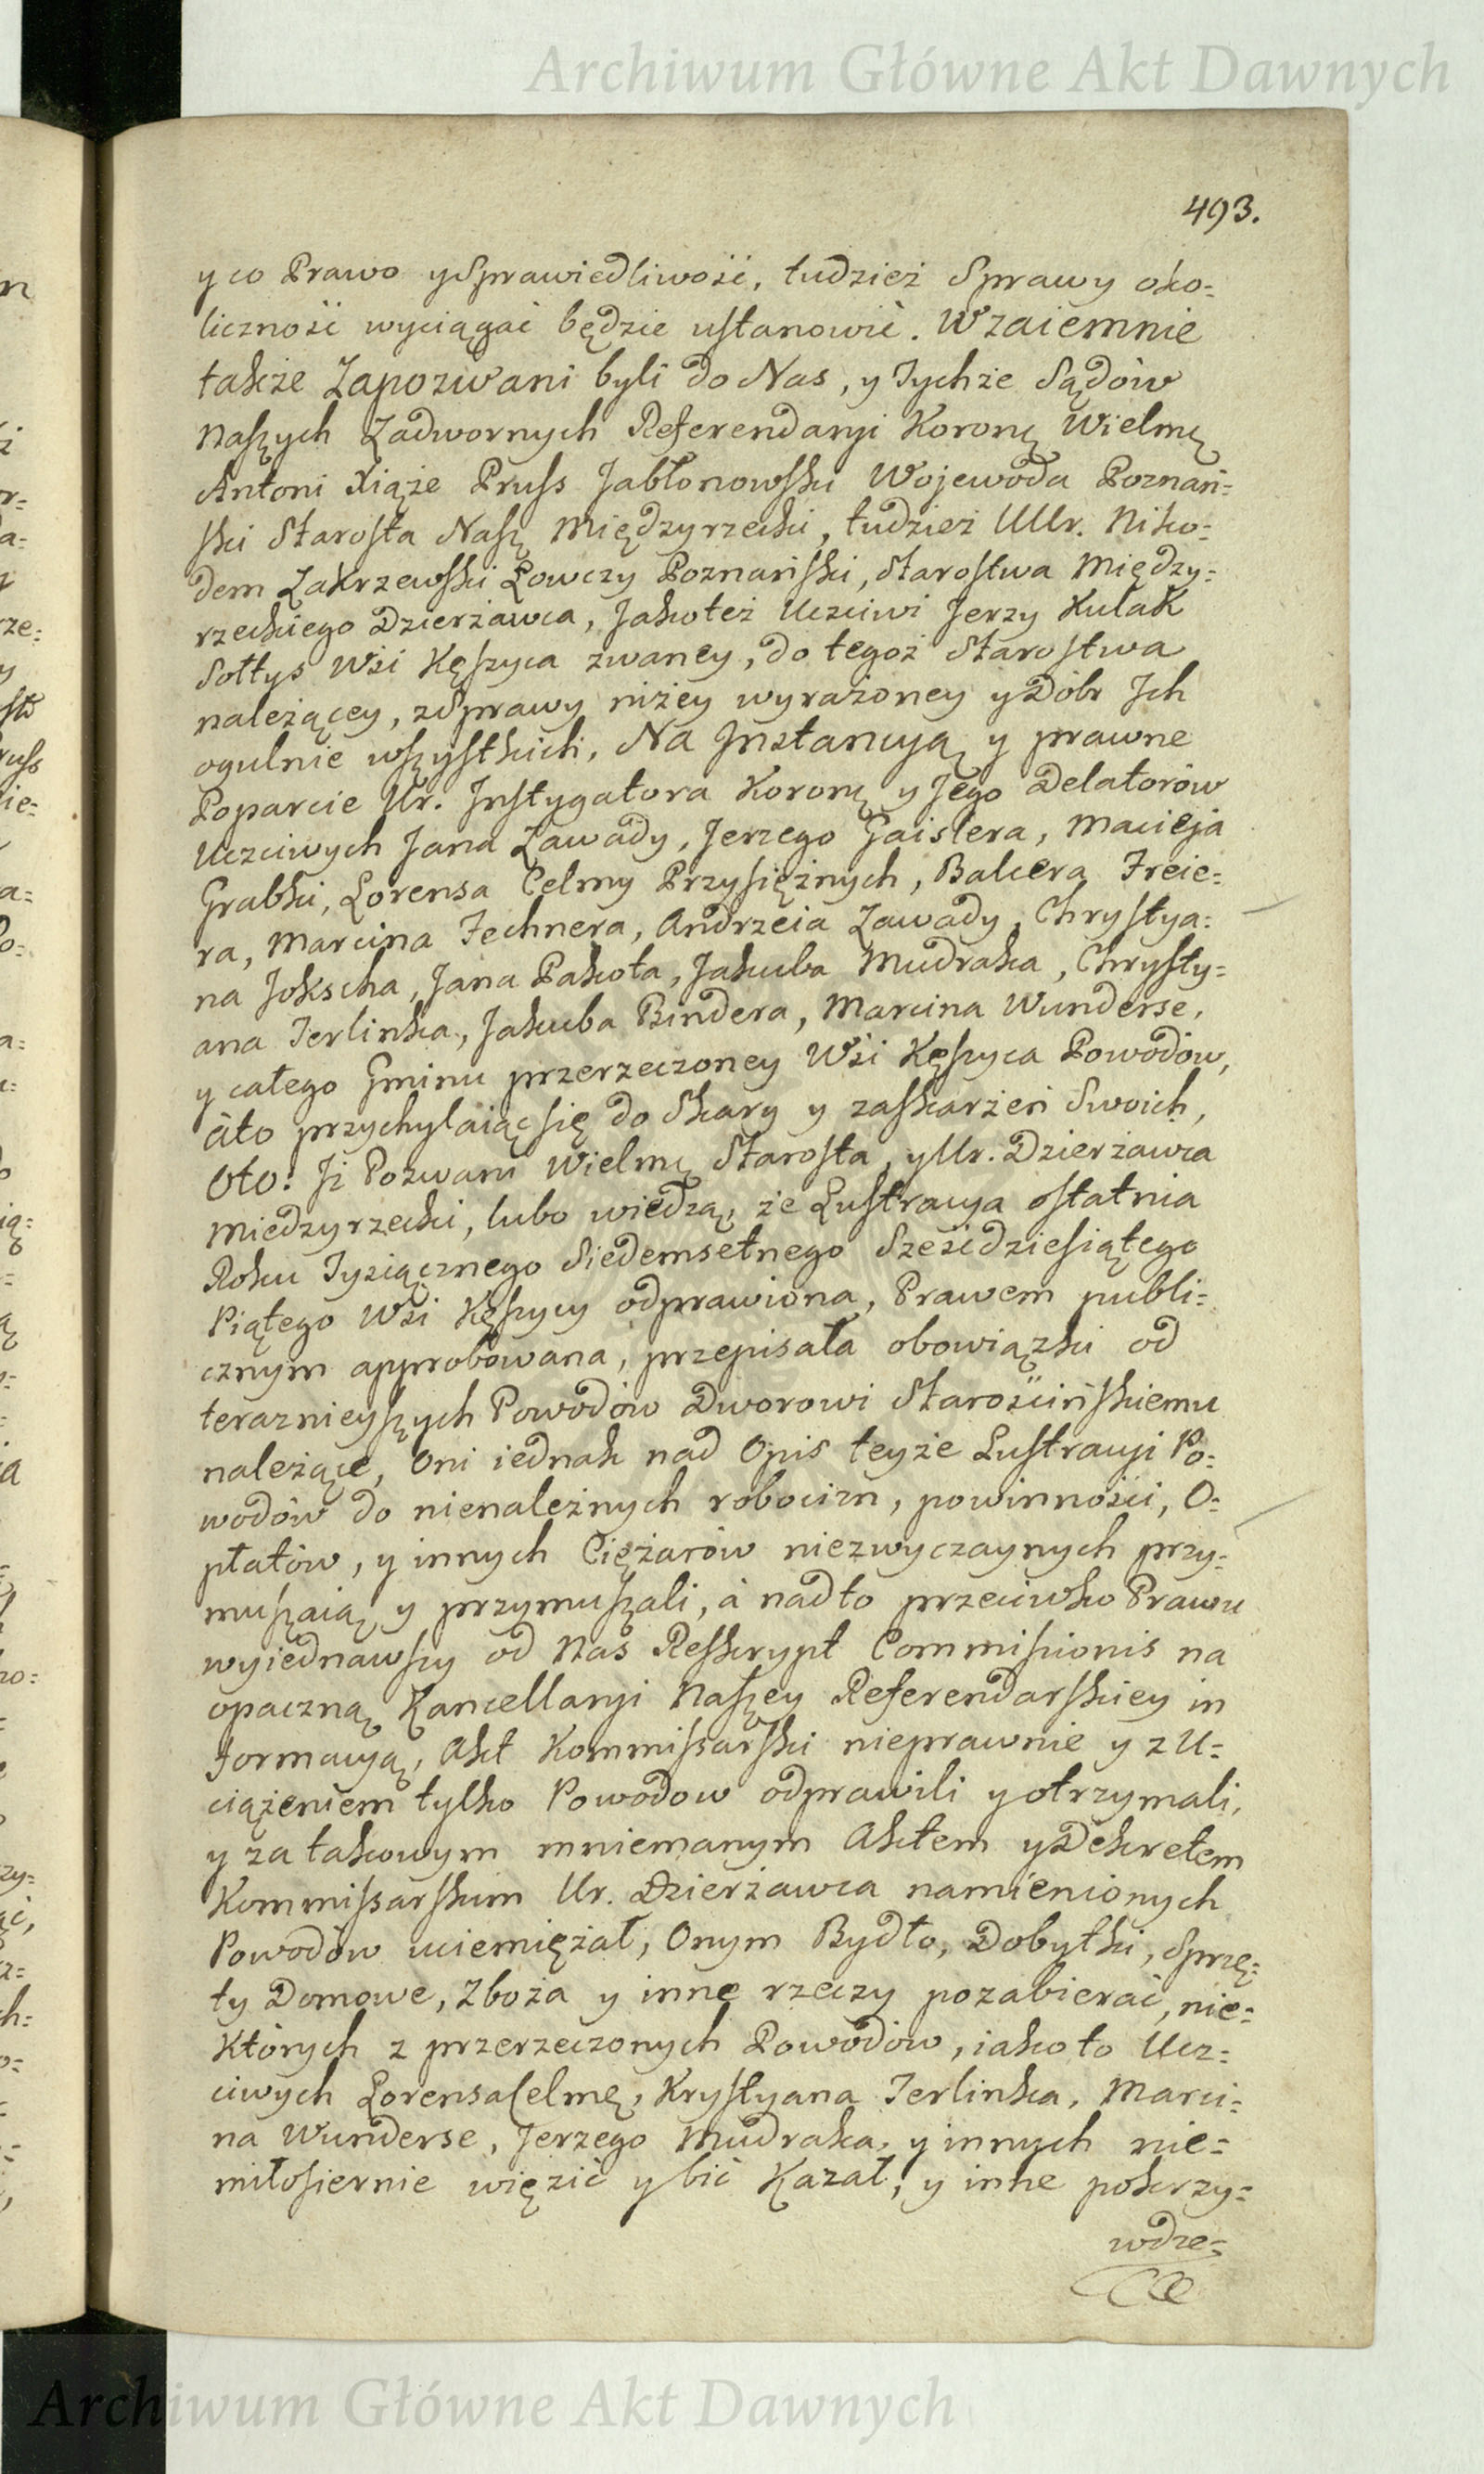 Archiwum Główne Akt Dawnych
493.
y co Prawo y Sprawiedliwość, tudzież Sprawy oko=
liczność wyciągać będzie ustanowić. Wzaiemnie
także Zapozwani byli do Nas, y Tychże Sądów
Naszych Zadwornych Referendaryi Koronę Wielmę
Antoni Xiąże Pruss Jabłonowski Wojewoda Poznań=
ski Starosta Nasz Międzyrzecki, tudzież UUr. Niko=
dem Zakrzewski Łowczy Poznański, Starostwa Między=
rzeckiego Dzierżawca, Jakoteż Uczciwi Jerzy Kulak
Sołtys Wśi Kęszyca zwaney, do tegoż Starostwa
należącey, z Sprawy niżey wyrażoney y Dóbr Ich
ogulnie wszystkich, Na Instancyą y prawne
Poparcie Ur. Instygatora Koronę y Jego Delatorów
Uczciwych Jana Zawady, Jerzego Gaislera, Macieja
Grabki, Lorensa Celmy Przysiężnych, Balcera Freie=
ra, Marcina Fechnera, Andrzeia Zawady, Chrystya=
na Jokscha, Jana Pakoła, Jakuba Mudraka, Chrysty=
ana Ferlinka, Jakuba Bindera, Marcina Wunderse,
y całego Gminu przerzeczoney Wśi Kęszyca Powodów,
àto przychylaiąc się do Skarg y zaskarżeń Swoich,
Oto: Iż Pozwani Wielmę Starosta, y Ur. Dzierżawca
Miedzyrzecki, lubo wiedzą, że Lustracya ostatnia
Roku Tysiącznego Siedemsetnego Sześćdziesiątego
Piątego Wśi Kęszycy odprawiona, Prawem publi=
cznym approbowana, przepisała obowiązki od
teraznieyszych Powodów Dworowi Starościńskiemu
należące, Oni iednak nad Opis teyże Lustracyi Po=
wodów do nienależnych robocizn, powinności, O=
płatów, y innych Ciężarów niezwyczaynych przy=
muszaią y przymuszali, à nadto przeciwko Prawu
wyiednawszy od Nas Reskrypt Commissionis na
opaczną Kancellaryi Naszey Referendarskiey in
formacyą, Akt Kommissarski nieprawnie y z U=
ciążeniem tylko Powodow odprawili y otrzymali,
y za takowym mniemanym Aktem y Dekretem
Kommissarskim Ur. Dzierżawca namienionych
Powodów uciemiężał, Onym Bydło, Dobytki, Sprzę=
ty Domowe, Zboża y inne rzeczy pozabierać, nie=
których z przerzeczonych Powodów, iako to Ucz=
ciwych Lorensa Celmę, Krystyana Ferlinka, Marci=
na Wunderse, Jerzego Mudraka, y innych nie=
miłosiernie więzić y bić Kazał, y inne pokrzy=
wdze=
Archiwum Główne Akt Dawnych